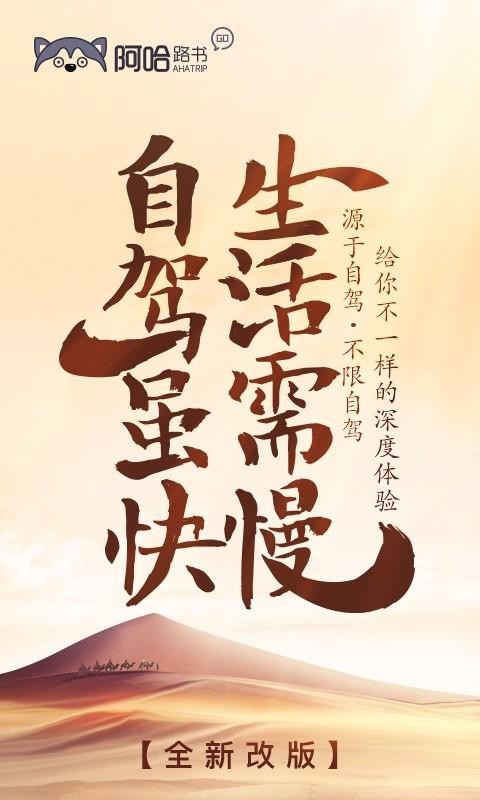 阿哈路书
AHATRIP
GO
给你不一样的深度体验
源于自驾·不限自驾
生活需慢
自驾虽快
【全新改版】